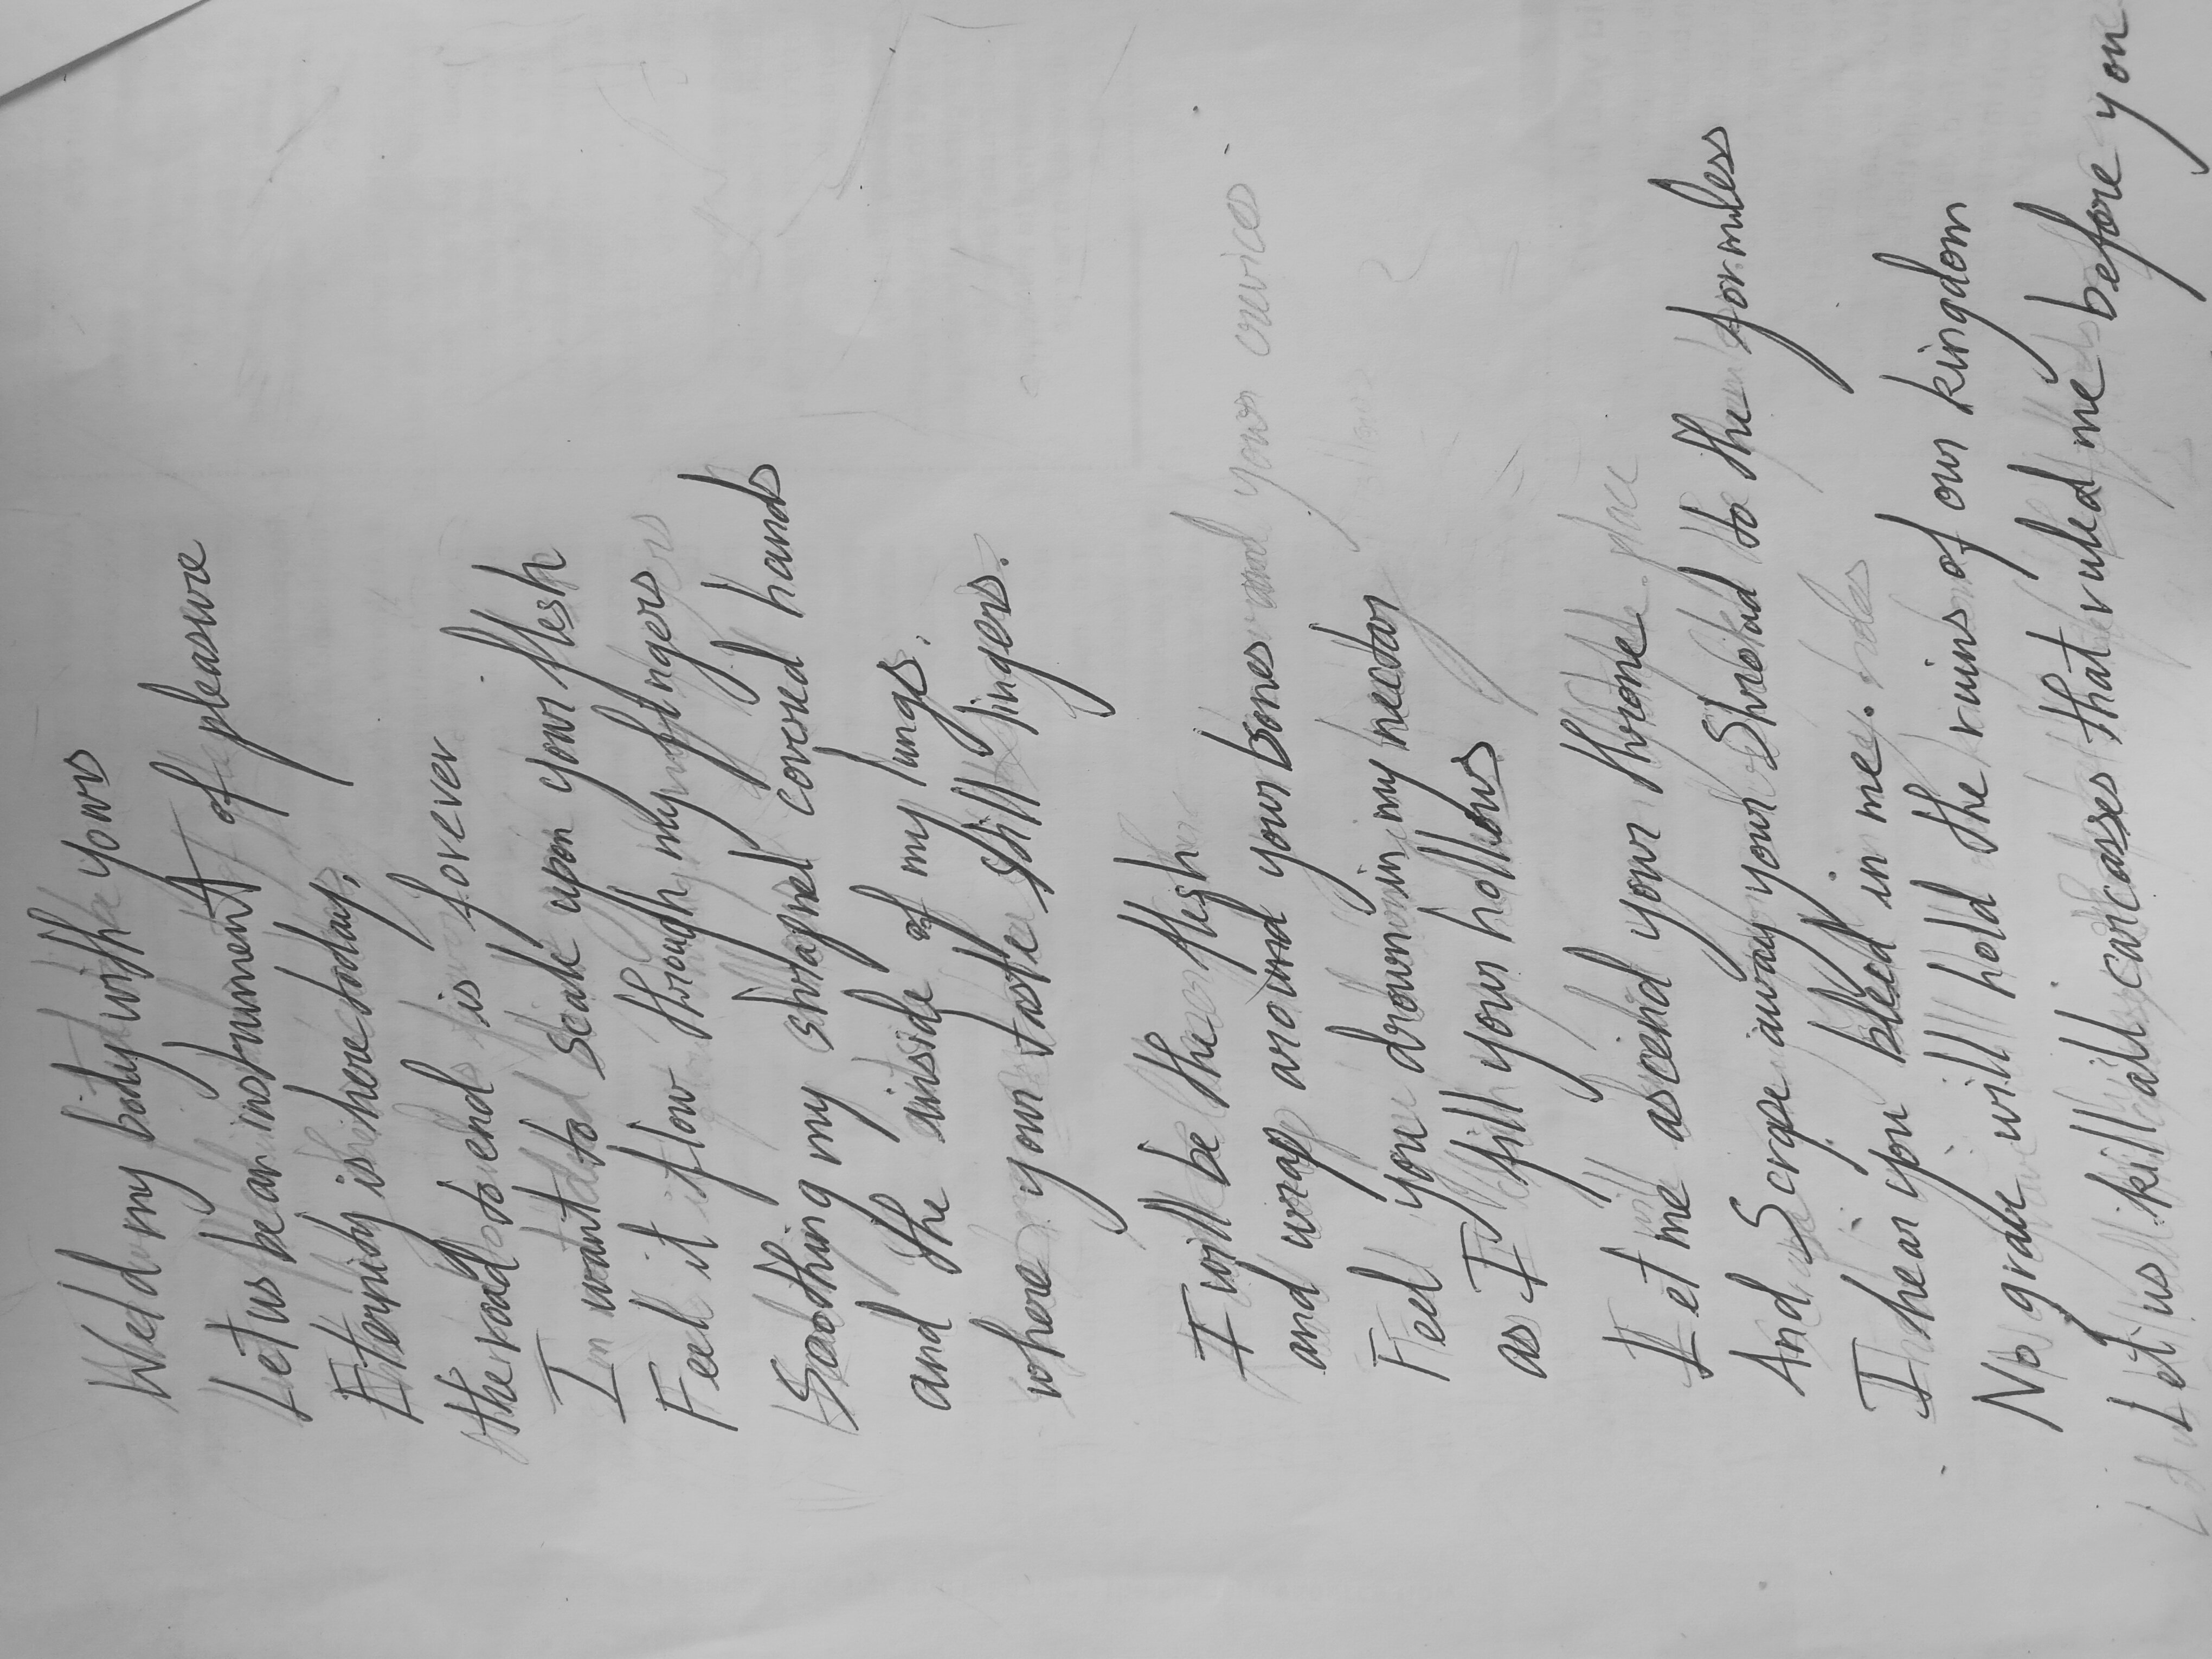 Weld my body with yours
Let us be an instrument of pleasure
Eternity is here today,
the road to end is forever
I want to soak upon your flesh
Feel it flow through my fingers
Soothing my shrapnel covered hands
and the inside of my lungs.
where your taste still lingers.
I will be the flesh
and wrap around your bones
Feel you drown in my nectar
as I fill your hollows
Let me ascend your throne
And Scrape away your Shroud to the formless
I hear you bleed in me.
No grave will hold the ruins of our kingdom
Let us kill all carcasses that ruled me before you